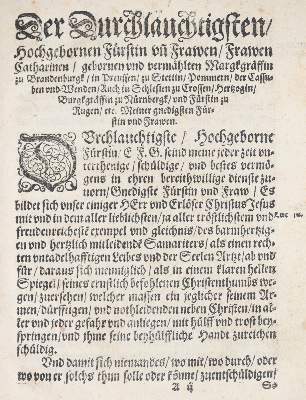 Der Durchlauchtigsten/
Hochgebornen Fürstin vñ Frawen/ Frawen
Catharinen/ gebornen vnd vermählten Margkgräffin
zu Brandenburgk/ in Preussen/ zu Stettin/ Pommern/ der Cassu-
ben vnd Wenden/ Auch in Schlesien zu Crossen/ Hertzogin/
Burgkgräffin zu Nürnbergk/ vnd Fürstin zu
Rugen/ etc. Meiner gnedigsten Für-
stin vnd Frawen.
DVrchlauchtigste/ Hochgeborne
Fürstin/ E. F. G. seind meine jeder zeit vn-
terthenige/ schüldige/ vnd bestes vermö-
gens in ehren bereithwillige dienste zu-
uorn/ Gnedigste Fürstin vnd Fraw/ Es
bildet sich vnser einiger HErr vnd Erlöser Christus Jesus
mit vnd in dem aller lieblichsten/ ja aller tröstlichstem vnd
Luc 10.
freudenreicheste exempel vnd gleichnis/ des barmhertzi-
gen vnd hertzlich mitleidende Samariters/ als einen rech-
ten vntadelhafftigen Leibes vnd der Seelen Artzt/ ab vnd
für/ daraus sich menniglich/ als in einem klaren hellen
Spiegel/ seines ernstlich befohlenen Christenthumbs we-
gen/ zuersehen/ welcher massen ein jeglicher seinem Ar-
men/ dürfftigen/ vnd nothleidenden neben Christen/ in al-
ler vnd jeder gefahr vnd anliegen/ mit hülff vnd trost bey-
springen/ vnd ihme seine beyhülffliche Handt zureichen
schüldig.
Vnd damit sich niemandes/ wo mit/ wo durch/ oder
wo von er solchs thun solle oder könne/ zuentschüldigen/
A ij
So